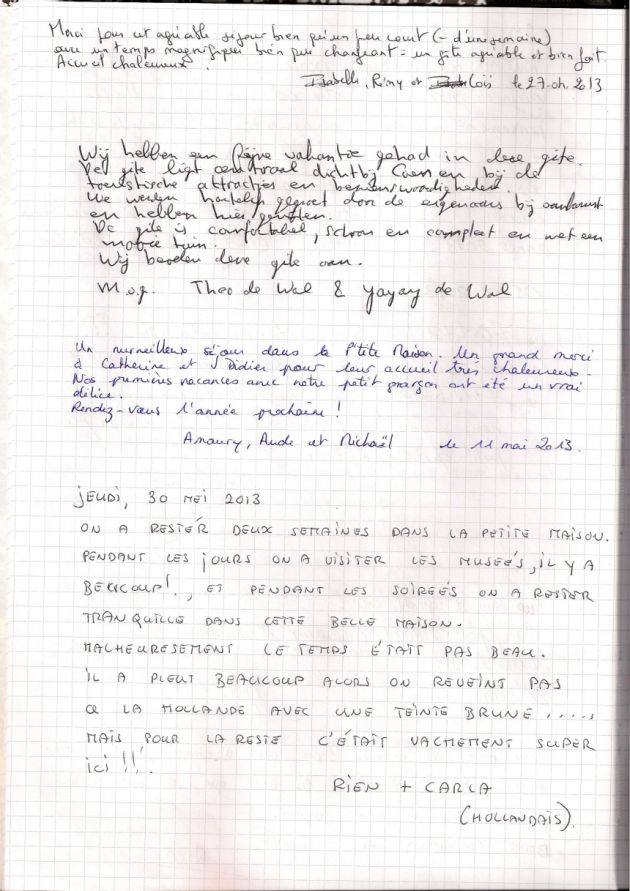 Merci pour cet agréable séjour bien qu'un peu court (- d'une semaine)
avec un temps magnifique bien que changeant = un gîte agréable et bien fait
Accueil chaleureux.
Isabelle, Rémy et Loïs le 27.04.2013
Wij hebben een fijne vakantie gehad in deze gite.
De gite ligt centraal dichtbij Caen en bij de
toeristische attracties en bezienswaardigheden.
We werden hartelijk groet door de eigenaars bij aankomst
en hebben hier genoten.
De gite is comfortabel, schoon en compleet en met een
mooie tuin.
Wij bevelen deze gite aan.
M.v.g. Theo de Wal & Yayay de Wal
Un merveilleux séjour dans la P'tite Maison. Un grand merci
à Catherine et Didier pour leur accueil très chaleureux.
Nos premières vacances avec notre petit garçon ont été un vrai
délice.
Rendez-vous l'année prochaine !
Amaury, Aude et Michaël le 11 mai 2013.
JEUDI, 30 MEI 2013
ON A RESTÉR DEUX SEMAINES DANS LA PETITE MAISON.
PENDANT LES JOURS ON A VISITER LES MUSEÉS, IL Y A
BEAUCOUP!, ET PENDANT LES SOIREÉS ON A RESTER
TRANQUILLE DANS CETTE BELLE MAISON.
MALHEURESEMENT LE TEMPS ÉTAIT PAS BEAU.
IL A PLEUT BEAUCOUP ALORS ON REVEINT PAS
A LA HOLLANDE AVEC UNE TEINTE BRUNE .....,
MAIS POUR LA RESTE C'ÉTAIT VACHEMENT SUPER
ICI !!!
RIEN + CARLA
(HOLLANDAIS).